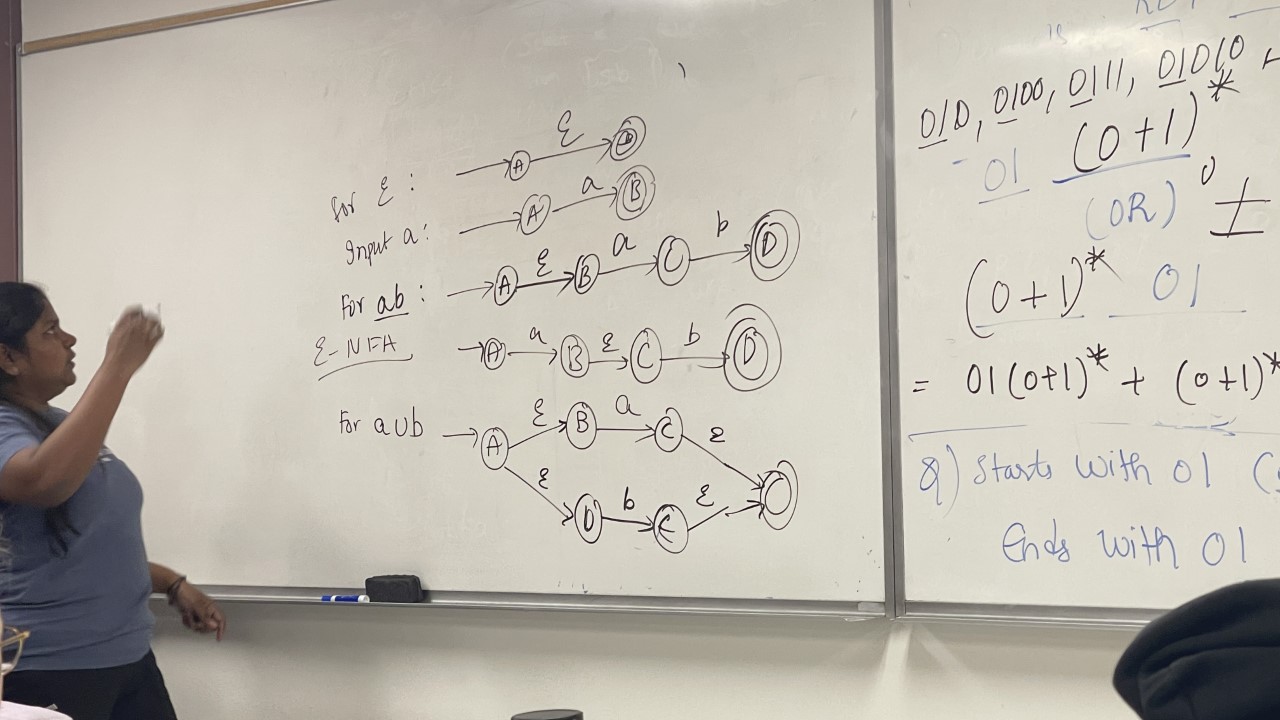 For ε :
A ε B
Input a :
A a B
For ab :
A ε B a C b D
ε-NFA
A a B ε C b D
For a∪b
A ε B a C ε
ε D b ε
010, 0100, 0111, 01010
01 (0+1)*
(OR)
(0+1)* 01
= 01(0+1)* + (0+1)*
Q) Starts with 01 (
Ends with 01